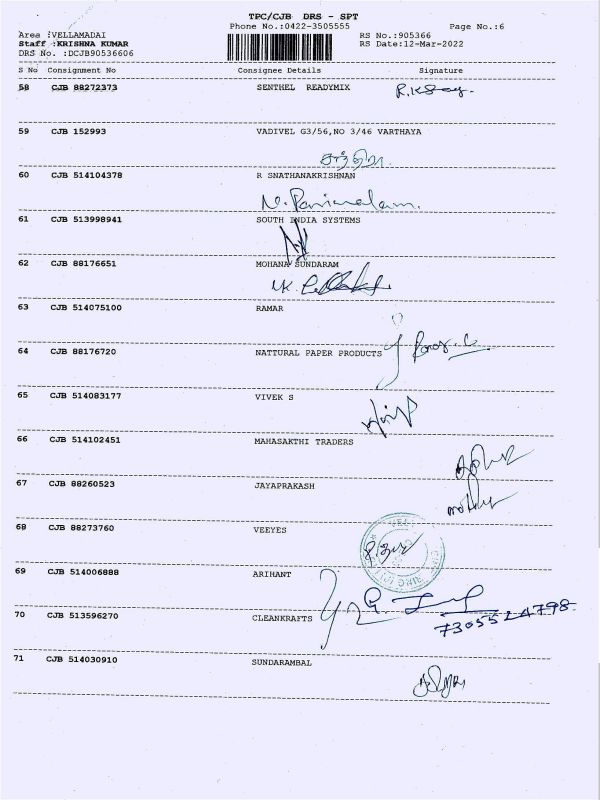 TPC/CJB DRS - SPT
Phone No.:0422-3505555 Page No.:6
Area :VELLAMADAI RS No.:905366
Staff :KRISHNA KUMAR RS Date:12-Mar-2022
DRS No. :DCJB90536606
S No Consignment No Consignee Details Signature
58 CJB 88272373 SENTHEL READYMIX
59 CJB 152993 VADIVEL G3/56,NO 3/46 VARTHAYA
60 CJB 514104378 R SNATHANAKRISHNAN
61 CJB 513998941 SOUTH INDIA SYSTEMS
62 CJB 88176651 MOHANA SUNDARAM
63 CJB 514075100 RAMAR
64 CJB 88176720 NATTURAL PAPER PRODUCTS
65 CJB 514083177 VIVEK S
66 CJB 514102451 MAHASAKTHI TRADERS
67 CJB 88260523 JAYAPRAKASH
68 CJB 88273760 VEEYES
69 CJB 514006888 ARIHANT
70 CJB 513596270 CLEANKRAFTS
7305524798
71 CJB 514030910 SUNDARAMBAL